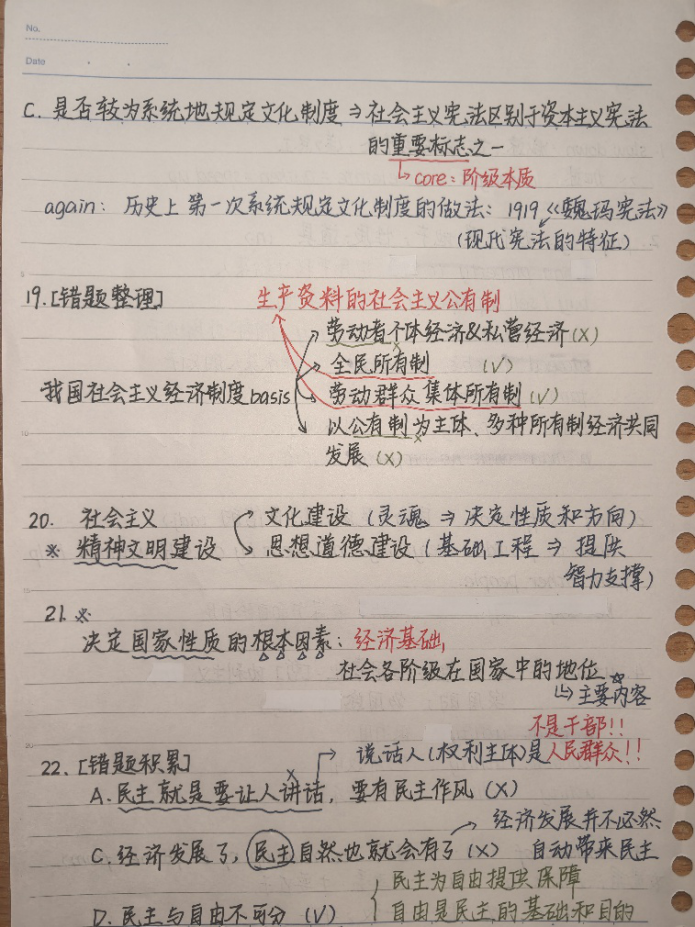 No.
Date
C. 是否较为系统地规定文化制度 ⇒ 社会主义宪法区别于资本主义宪法
的重要标志之一
core: 阶级本质
again: 历史上第一次系统规定文化制度的做法: 1919《魏玛宪法》
(现代宪法的特征)
19. [错题整理] 生产资料的社会主义公有制
劳动者个体经济&私营经济(X)
全民所有制 (V)
我国社会主义经济制度basis 劳动群众集体所有制(V)
以公有制为主体、多种所有制经济共同
发展(X)
20. 社会主义 文化建设 (灵魂 ⇒ 决定性质和方向)
※ 精神文明建设 思想道德建设 (基础工程 ⇒ 提供
智力支撑)
21. ※
决定国家性质的根本因素: 经济基础,
社会各阶级在国家中的地位 ☆
主要内容
不是干部!!
22. [错题积累] X 说话人(权利主体)是人民群众!!
A. 民主就是要让人讲话, 要有民主作风 (X)
经济发展并不必然
C. 经济发展了, 民主自然也就会有了 (X) 自动带来民主
民主为自由提供保障
D. 民主与自由不可分 (V) 自由是民主的基础和目的